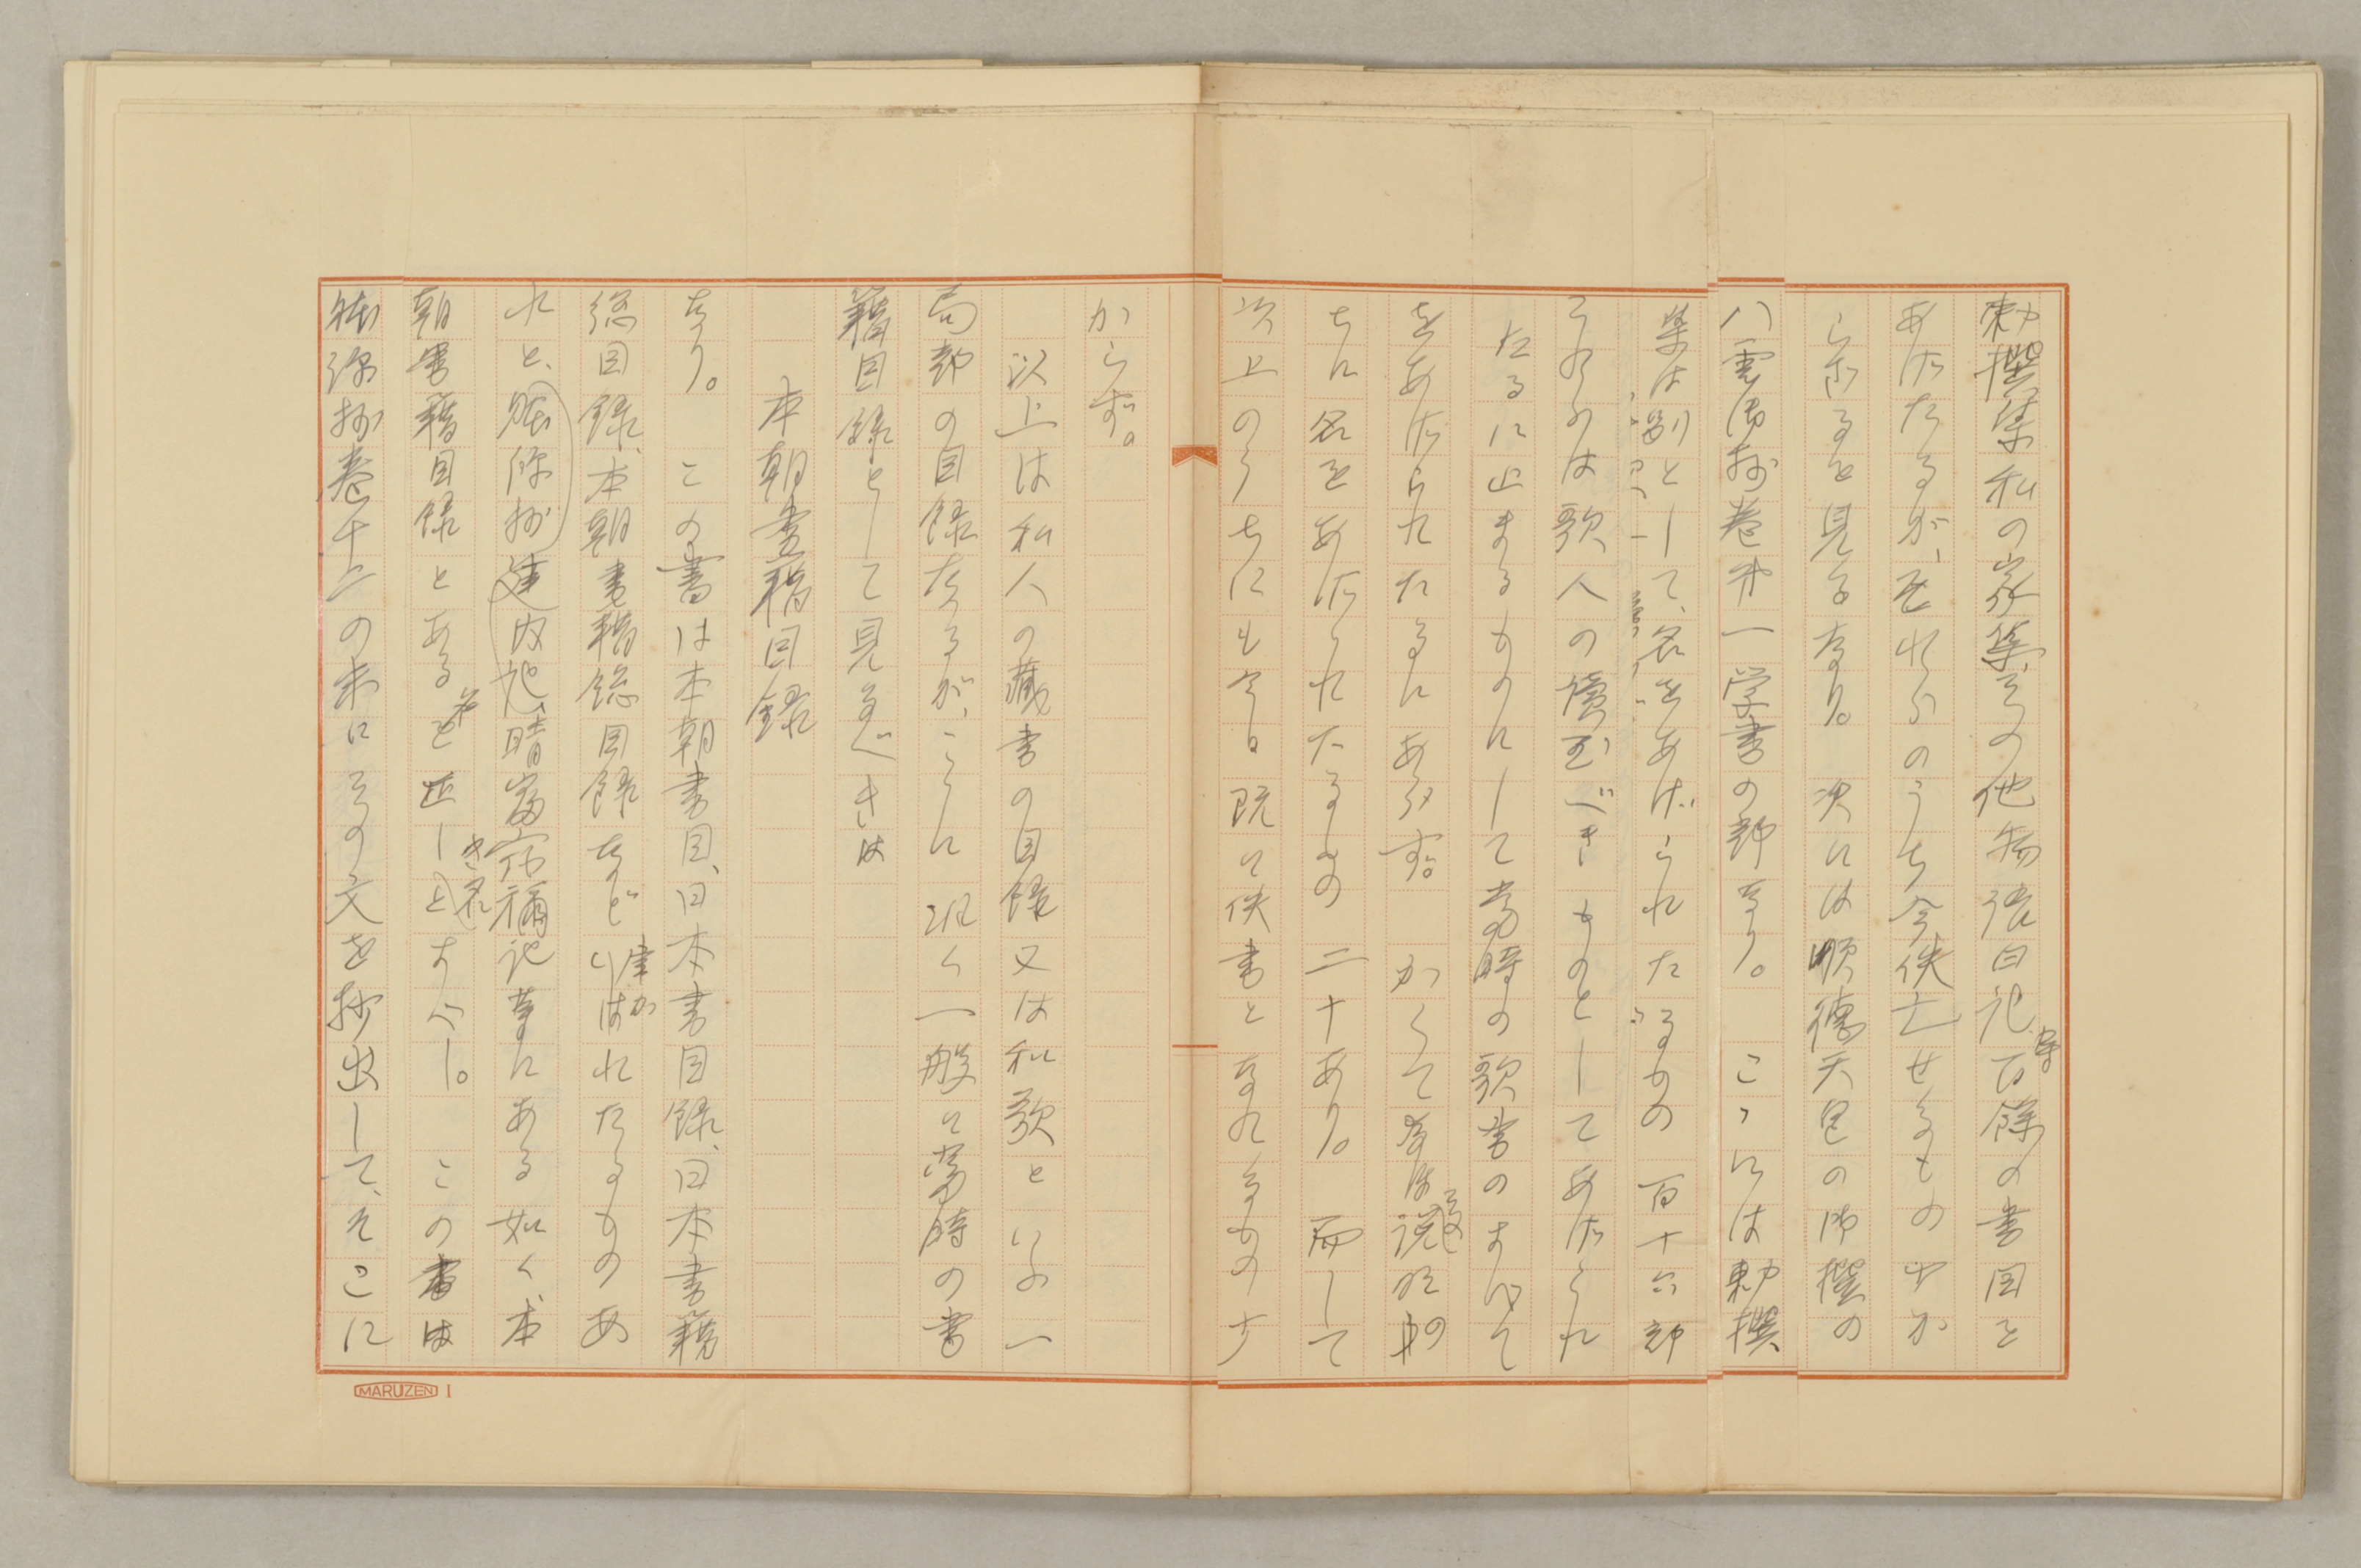 勅撰集私の家集その他物語日記等百餘の書目を
あげたるが、それらのうち今佚亡せるもの少か
らざるを見るなり。次には順徳天皇の御撰の
八雲御抄巻第一学書の部なり。こゝには勅撰
集は別として、名をあげられたるもの百十六部
そのうちには歌人の讀むべきものとしてあげられ
たるに止まるものにして当時の歌書のすべて
をあげられたるにあらず。かくてなほ説明の
ちに名をあげられたるもの二十あり。而して
以上のうちにも今日既に佚書となれるもの少
からず。
以上は私人の蔵書の目録又は和歌といふ一
局部の目録なるが、こゝに汎く一般に當時の書
籍目録として見るべきは
本朝書籍目録
なり。この書は本朝書目、日本書目録、日本書籍
総目録、本朝書籍総目録などいはれたるものあ
れど、建内記、晴富宿禰記等にある如く本
朝書籍目録とあるを正しき名とすべし。この書は
拾芥抄巻十二の末にその文を抄出して、そこに
MARUZEN I